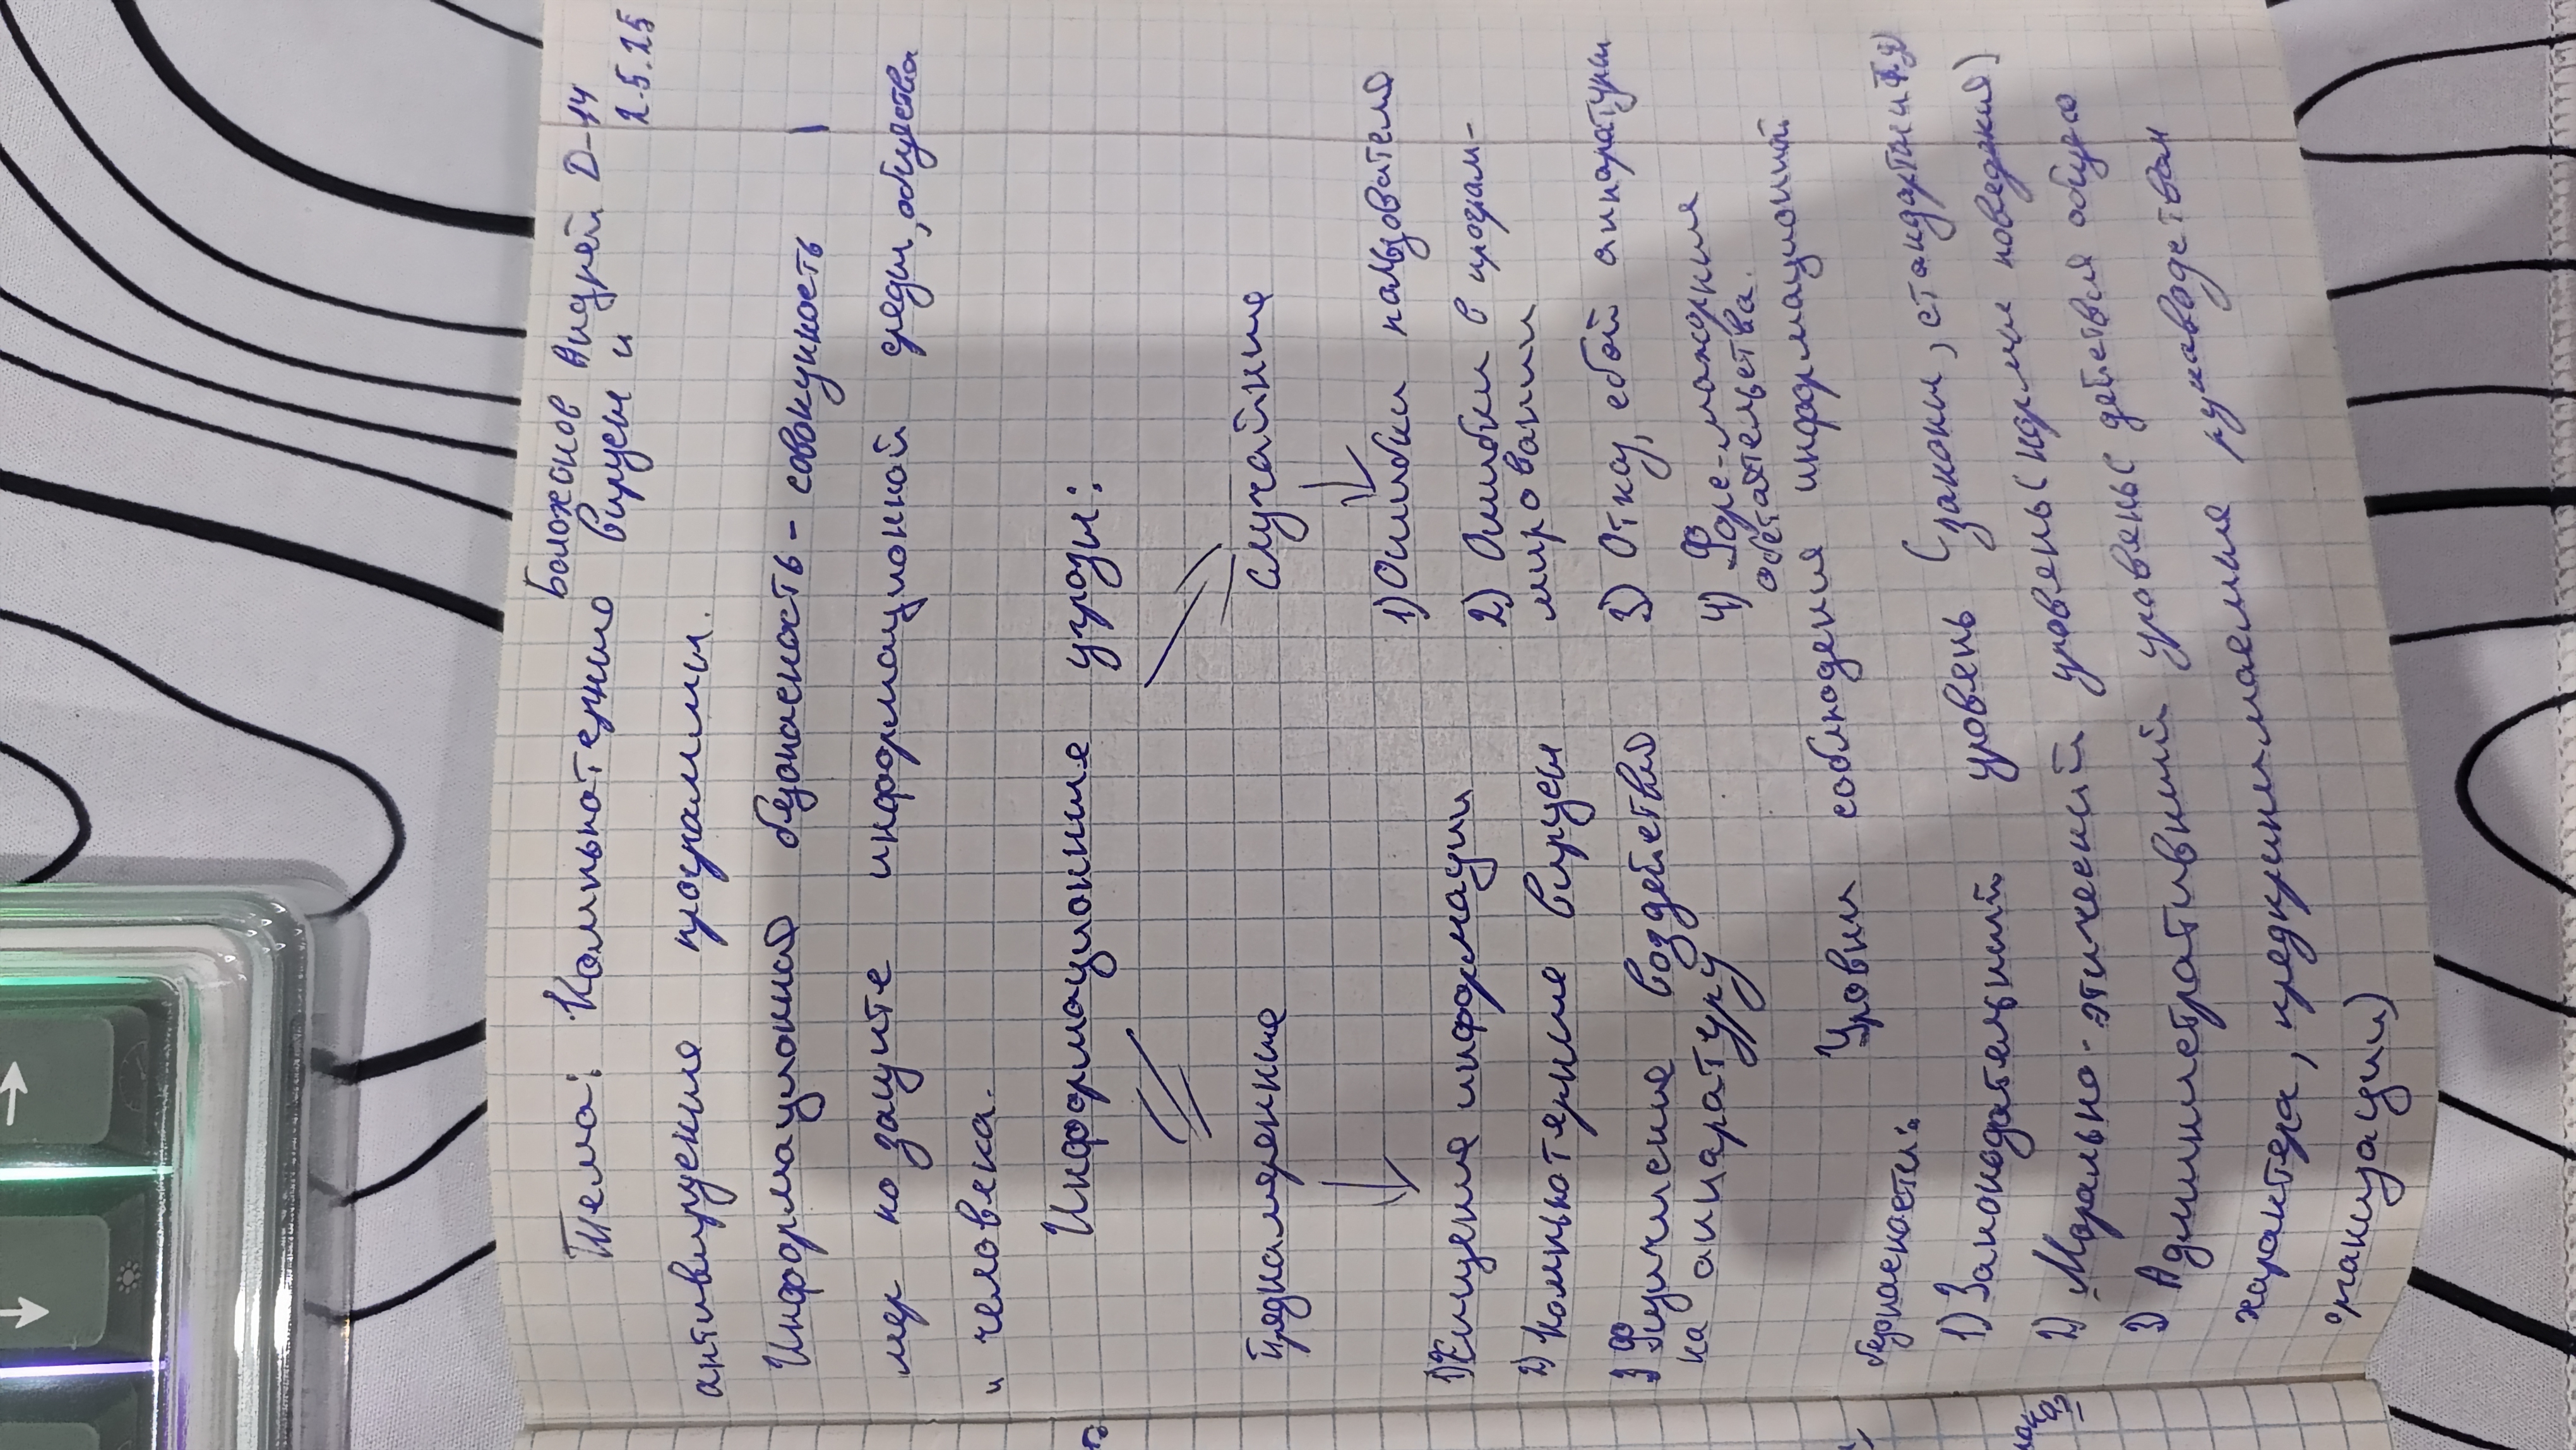 Баложанов Андрей D-14
2.5.25
Тема: Компьютерные вирусы и
антивирусные программы.
Информационная безопасность - совокупность
мер по защите информационной среды, общества
и человека.
Информационные угрозы:
Преднамеренные
Случайные
1) Хищение информации
2) Компьютерные вирусы
3) Физические воздействия
на аппаратуру
1) Ошибки пользователя
2) Ошибки в програм-
мировании
3) Отказ, сбой аппаратуры
4) Форс-мажорные
обстоятельства.
Уровни соблюдения информационной
безопасности:
1) Законодательный уровень (законы, стандарты и т.д)
2) Морально-этический уровень (нормы поведения)
3) Административный уровень (действия общего
характера, предпринимаемые руководством
организации)